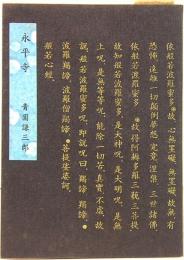 依般若波羅蜜多●故、心無罣礙、無罣礙、故無有
恐怖、遠離一切顛倒夢想、究竟涅槃、三世諸佛、
依般若波羅蜜多●故得阿耨多羅三藐三菩提
故知般若波羅蜜多、是大神呪、是大明呪、是無
上呪、是無等等呪、能除一切苦、真實不虚、故
説、般若波羅蜜多呪、即説呪曰、羯諦、羯諦●
波羅羯諦、波羅僧羯諦、●菩提娑婆訶、
般若心經、
永平寺
青園謙三郎